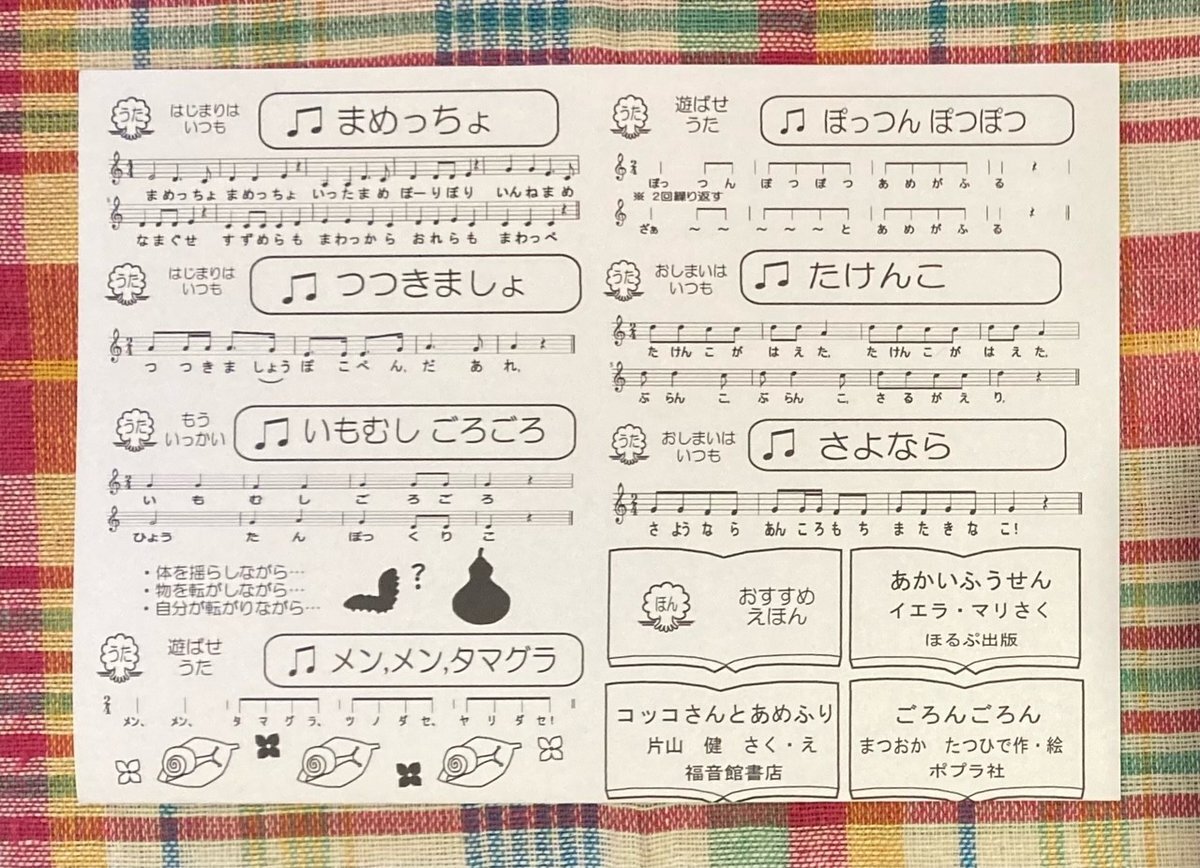 うた
はじまりは
いつも
まめっちょ
まめっちょ まめっちょ いったまめ ぼーりぼり いんねまめ
なまぐせ すずめらも まわっから おれらも まわっぺ
うた
はじまりは
いつも
つつきましょ
つ つ き ま しょう ぽ こ ぺ ん, だ あ れ,
うた
もう
いっかい
いもむし ごろごろ
い も む し ご ろ ご ろ
ひょう た ん ぽっ く り こ
・体を揺らしながら…
・物を転がしながら…
・自分が転がりながら…
?
うた
遊ばせ
うた
メン,メン,タマグラ
メン、 メン、 タ マ グ ラ、 ツ ノ ダ セ、 ヤ リ ダ セ!
うた
遊ばせ
うた
ぽっつん ぽつぽつ
ぽっ つ ん ぽ つ ぽ つ あ め が ふ る
※ 2回繰り返す
ざぁ 〜 〜 〜 〜 〜 と あ め が ふ る
うた
おしまいは
いつも
たけんこ
た けん こ が は え た, た けん こ が は え た,
ぶ らん こ, ぶ らん こ, さ る が え り,
うた
おしまいは
いつも
さよなら
さ よう な ら あん こ ろ も ち ま た き な こ!
ほん
おすすめ
えほん
あかいふうせん
イエラ・マリさく
ほるぷ出版
コッコさんとあめふり
片山 健 さく・え
福音館書店
ごろんごろん
まつおか たつひで作・絵
ポプラ社